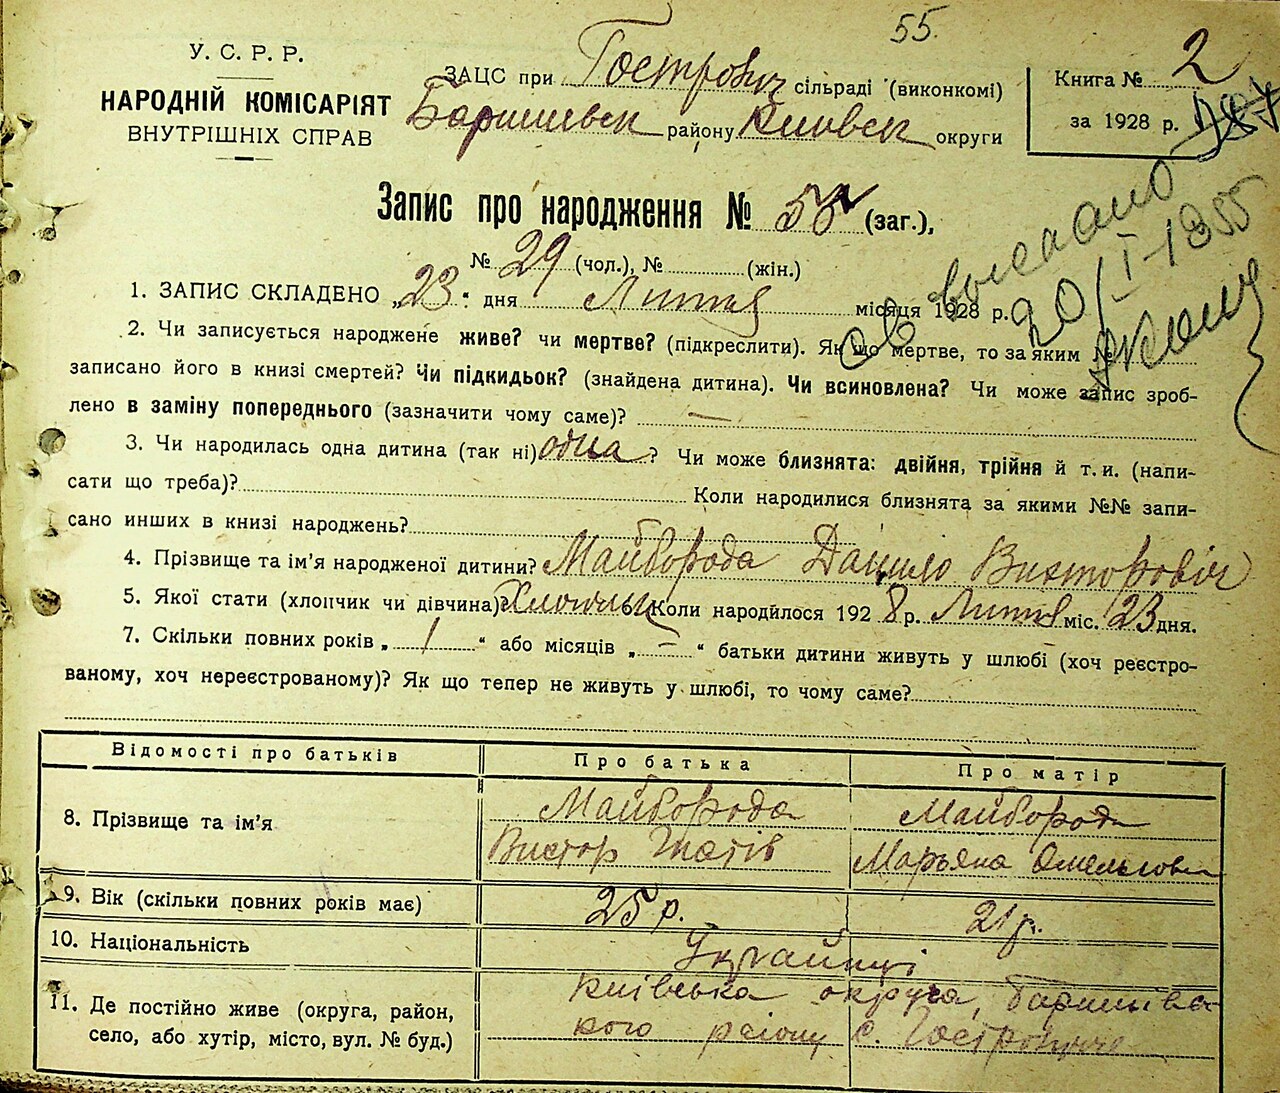 55.
У. С. Р. Р.
НАРОДНІЙ КОМІСАРІЯТ
ВНУТРІШНІХ СПРАВ
ЗАЦС при Гострович сільраді (виконкомі)
Баришевск району Киовск округи
Книга № 2
за 1928 р.
Запис про народження № 55 (заг.),
№ 29 (чол.), № (жін.)
1. ЗАПИС СКЛАДЕНО „23" дня Лиття місяця 1928 р.
20/I-1955
2. Чи записується народжене живе? чи мертве? (підкреслити). Як що мертве, то за яким №
записано його в книзі смертей? Чи підкидьок? (знайдена дитина). Чи всиновлена? Чи може запис зроб-
лено в заміну попереднього (зазначити чому саме)? —
3. Чи народилась одна дитина (так ні) одна? Чи може близнята: двійня, трійня й т. и. (напи-
сати що треба)? Коли народилися близнята за якими №№ запи-
сано инших в книзі народжень?
4. Прізвище та ім'я народженої дитини? Майборода Данило Викторовіч
5. Якої статі (хлопчик чи дівчина)? Хлопчик 6. Коли народилося 1928 р. Лиття міс. 23 дня.
7. Скільки повних років „ 1 " або місяців „ — " батьки дитини живуть у шлюбі (хоч реєстро-
ваному, хоч нереєстрованому)? Як що тепер не живуть у шлюбі, то чому саме?
Відомості про батьків Про батька Про матір
8. Прізвище та ім'я Майборода Майборода
Виктор Гнатів Марьяна Омельговна
9. Вік (скільки повних років має) 25 р. 21 р.
10. Національність Украйинці
11. Де постійно живе (округа, район, Київська округа, Баришівс-
село, або хутір, місто, вул. № буд.) кого району с. Гостролуччє